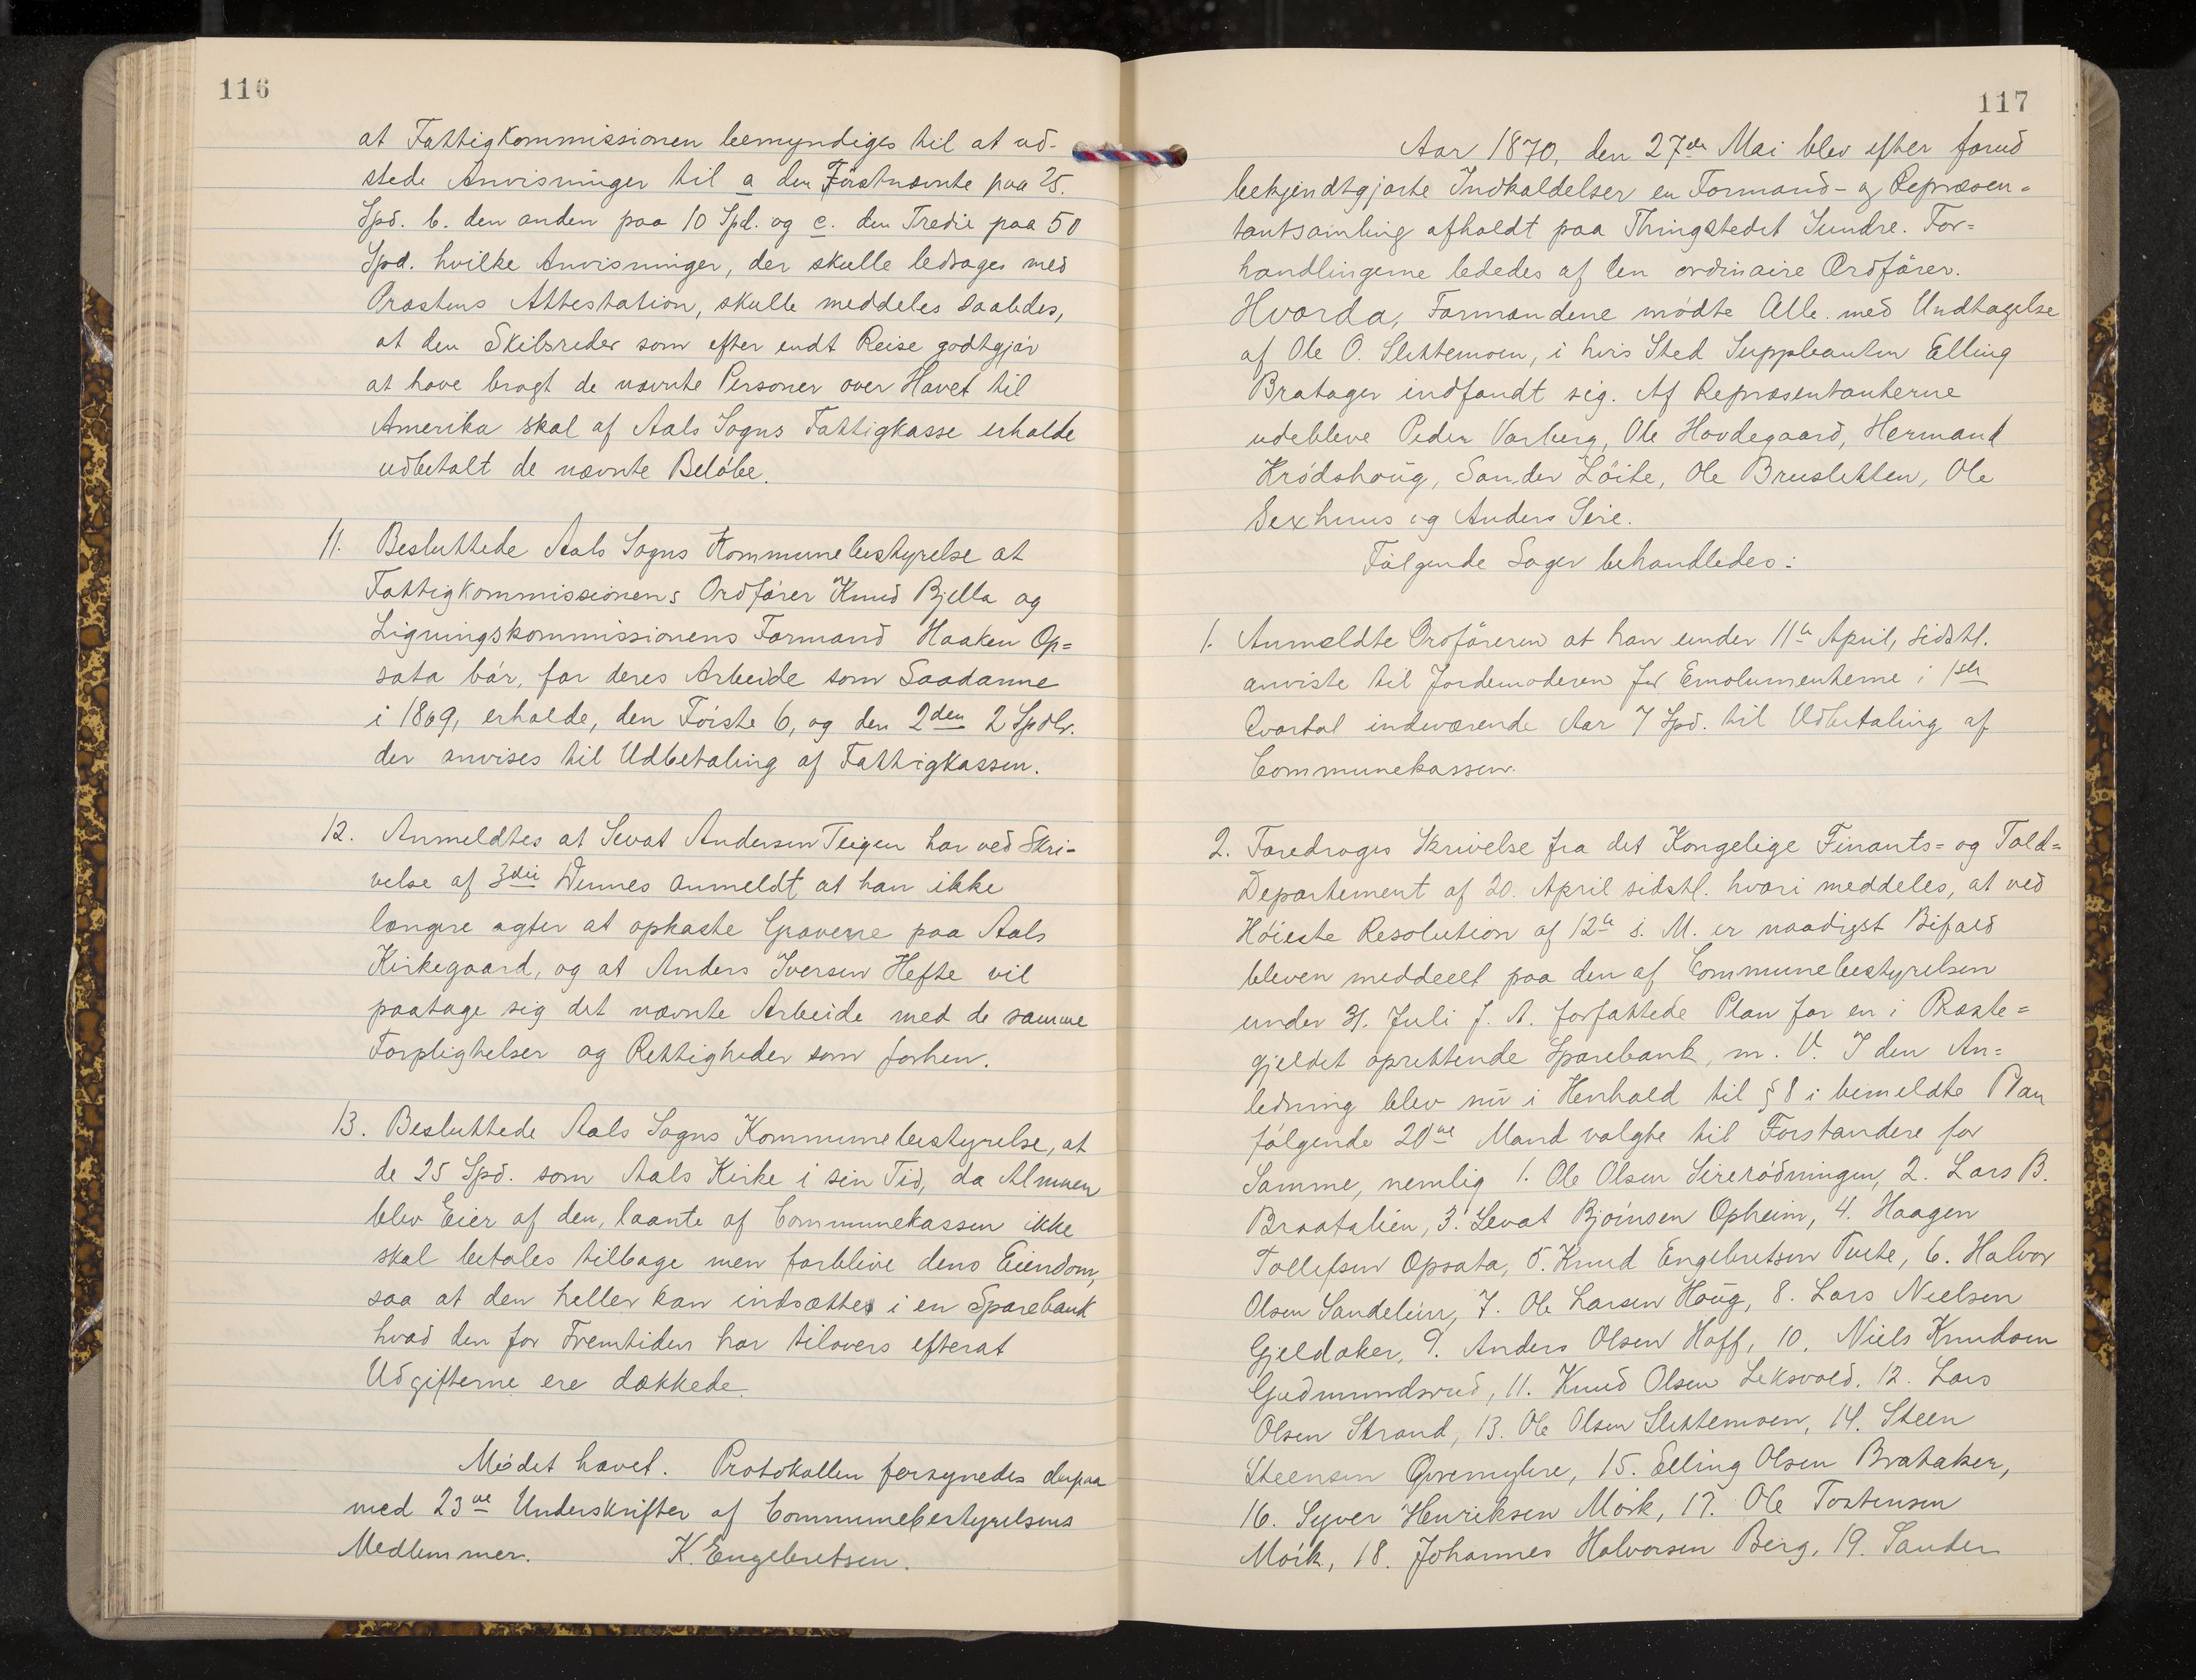 116
at Fattigkommissionen bemyndiges til at ud-
stede Anvisninger til a den Förstnævnte paa 25.
Spd. b. den anden paa 10 Spd. og c. den Tredie paa 50
Spd. hvilke Anvisninger, der skulle ledsages med
Præstens Attestation, skulle meddeles saaledes,
at den Skibsreder som efter endt Reise godtgjör
at have bragt de nævnte Personer over Havet til
Amerika skal af Aals Sogns Fattigkasse erholde
udbetalt de nævnte Belöbe.
11. Besluttede Aals Sogns Kommunebestyrelse at
Fattigkommissionens Ordförer Knud Bjella og
Ligningskommissionens Formand Haaken Op=
sata bör, for deres Arbeide som Saadanne
i 1869, erholde, den Förste 6, og den 2den 2 Spdlr.
der anvises til Udbetaling af Fattigkassen.
12. Anmeldtes at Sevat Andersen Teigen har ved Skri-
velse af 3die Dennes anmeldt at han ikke
længre agter at opkaste Gravene paa Aals
Kirkegaard, og at Anders Iversen Hefte vil
paatage sig det nævnte Arbeide med de samme
Forpligtelser og Rettigheder som forhen.
13. Besluttede Aals Sogns Kommunebestyrelse, at
de 25 Spd. som Aals Kirke i sin Tid, da Almuen
blev Eier af den, laante af Communekassen ikke
skal betales tilbage men forblive dens Eiendom,
saa at den heller kan indsættes i en Sparebank
hvad den for Fremtiden har tilovers efterat
Udgifterne ere dækkede.
Mödet hævet. Protokollen forsynedes derpaa
med 23ve Underskrifter af Communebestyrelsens
Medlemmer. K. Engebretsen.
117
Aar 1870, den 27de Mai blev efter forud
bekjendtgjorte Indkaldelser en Formand- og Repræsen=
tantsamling afholdt paa Thingstedet Sundre. For=
handlingerne lededes af den ordinaire Ordförer.
Hvorda, Formændene mödte Alle med Undtagelse
af Ole O. Slettemoen, i hvis Sted Suppleanten Elling
Bratager indfandt sig. Af Repræsentanterne
udebleve Peder Varberg, Ole Hovdegaard, Hermand
Krödshoug, Sander Löite, Ole Brusletten, Ole
Sexhuus og Anders Sire.
Fölgende Sager behandledes:
1. Anmeldte Ordföreren at han under 11te April, sidstl.
anviste til Jordemoderen for Emolumenterne i 1ste
Qvartal indeværende Aar 7 Spd. til Udbetaling af
Communekassen.
2. Foredroges Skrivelse fra det Kongelige Finants= og Told=
Departement af 20. April sidstl. hvori meddeles, at ved
Höieste Resolution af 12te s. M. er naadigst Bifald
bleven meddeelt paa den af Communebestyrelsen
under 31. Juli f. A. forfattede Plan for en i Præste=
gjeldet oprettende Sparebank, m. V. I den An=
ledning blev nu i Henhold til § 8 i bemeldte Plan
fölgende 20ve Mand valgte til Forstandere for
Samme, nemlig 1. Ole Olsen Sireródningen, 2. Lars B.
Braatalien, 3. Sevat Björnsen Opheim, 4. Haagen
Tollefsen Opsata, 5. Knud Engebretsen Tuete, 6. Halvor
Olsen Sandelien, 7. Ole Larsen Houg, 8. Lars Nielsen
Gjeldaker, 9. Anders Olsen Hoff, 10. Niels Knudsen
Gudmundsrud, 11. Knud Olsen Leksvold. 12. Lars
Olsen Strand, 13. Ole Olsen Slettemoen, 14. Steen
Steensen Qvremyhre, 15. Elling Olsen Brataker,
16. Syver Henriksen Mörk, 17. Ole Tostensen
Mörk, 18. Johannes Halvorsen Berg, 19. Sander